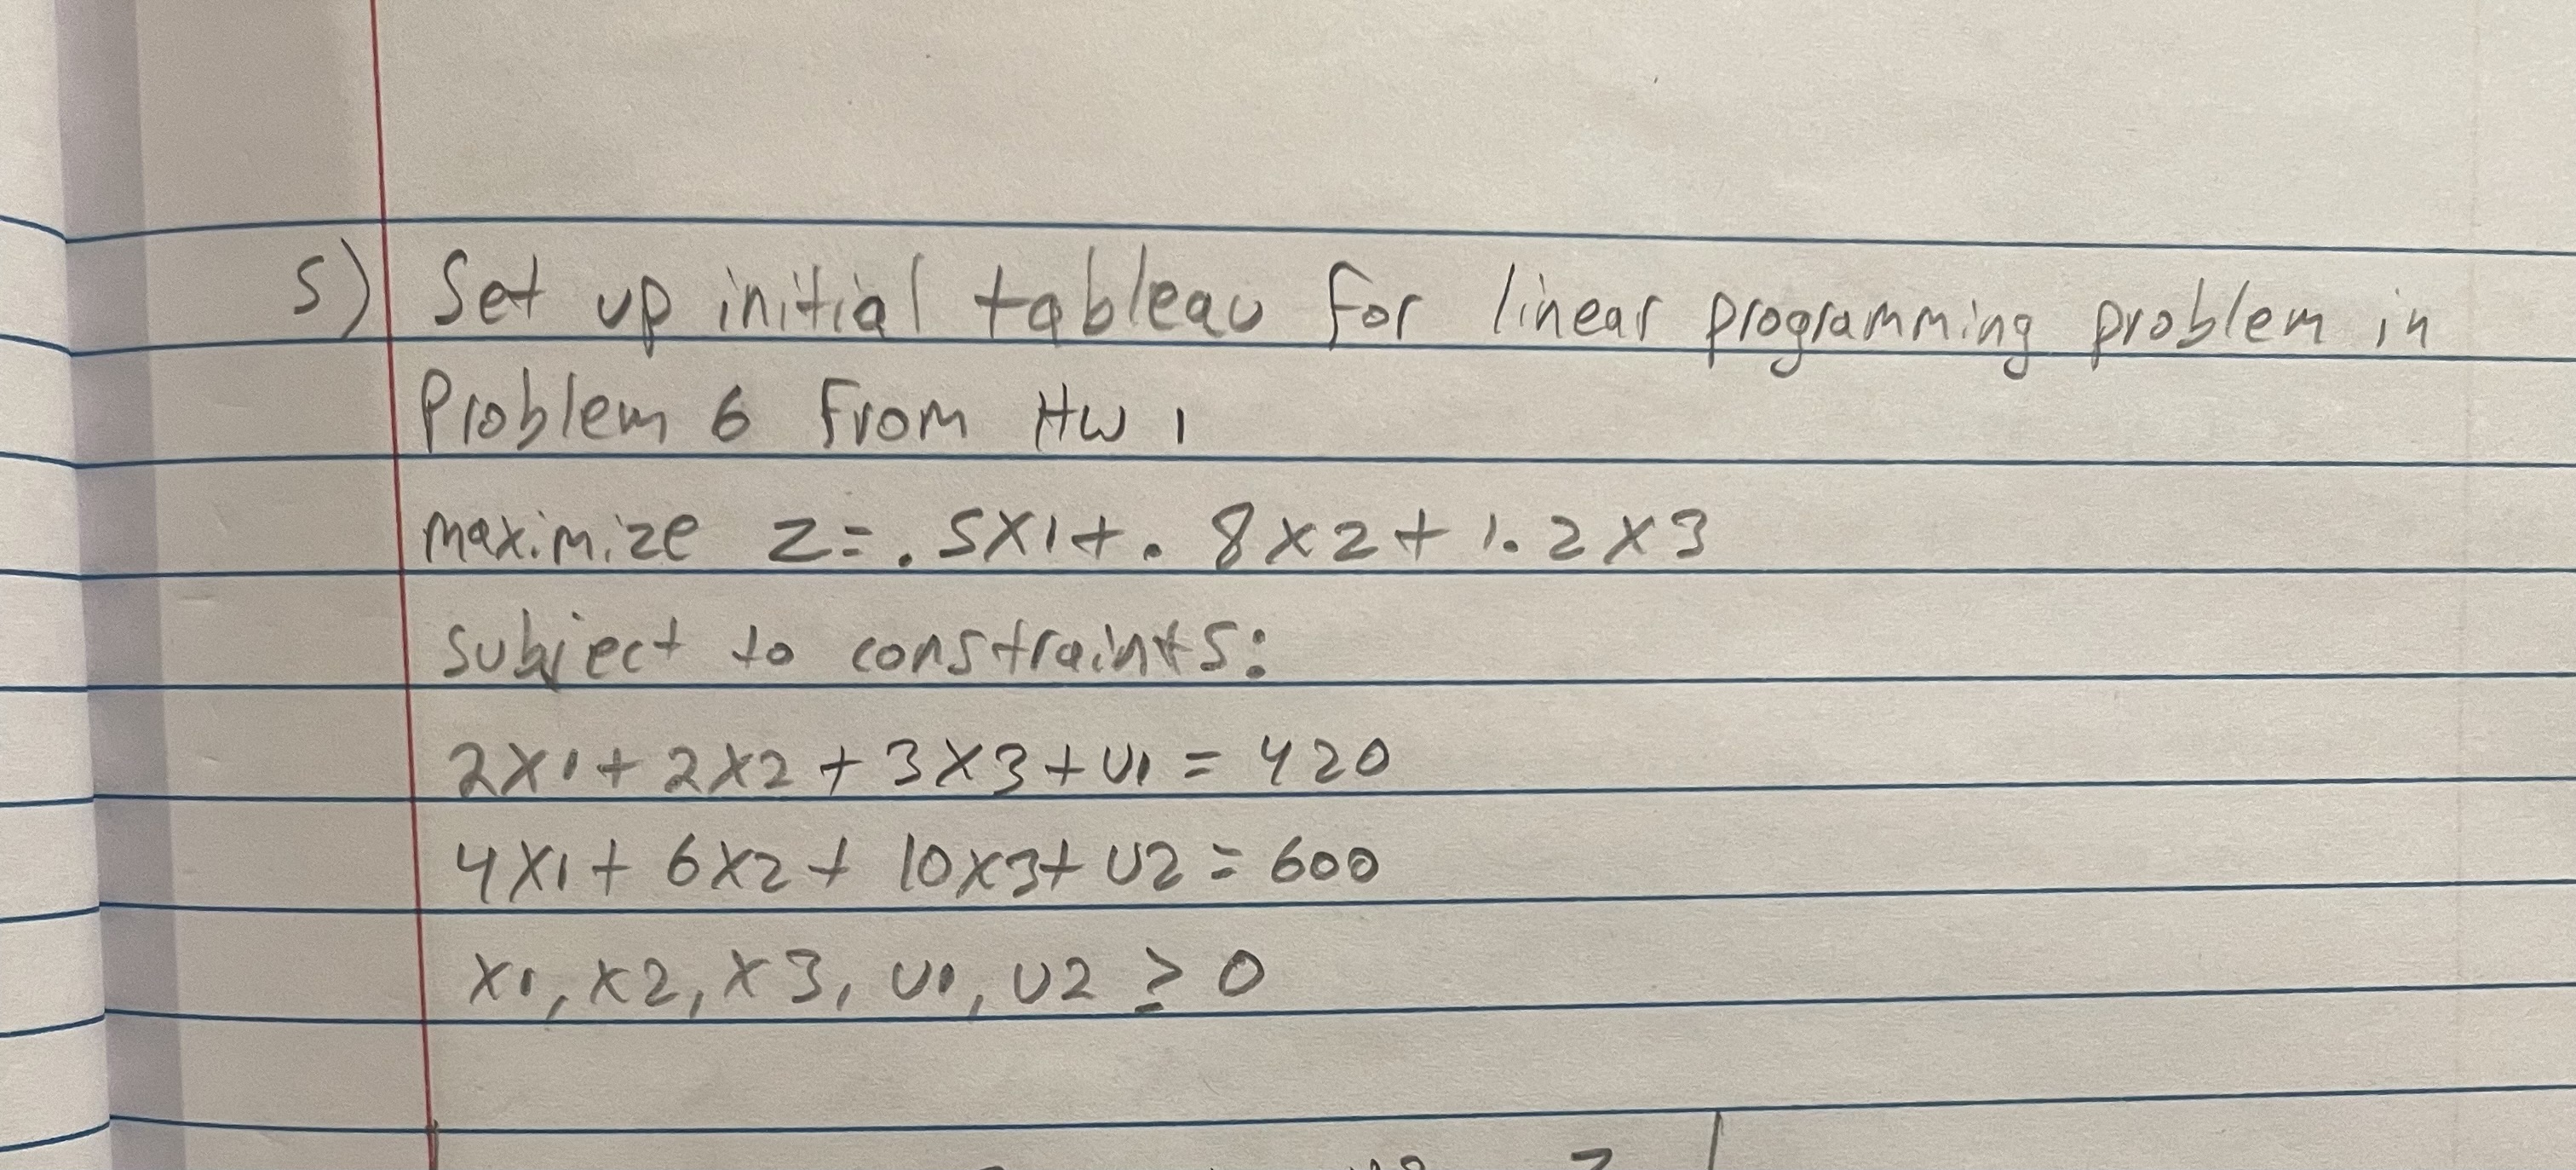 5) Set up initial tableau for linear programming problem in
Problem 6 from HW 1
maximize z = .5x1 + .8x2 + 1.2x3
subject to constraints:
2x1 + 2x2 + 3x3 + u1 = 420
4x1 + 6x2 + 10x3 + u2 = 600
x1, x2, x3, u1, u2 ≥ 0